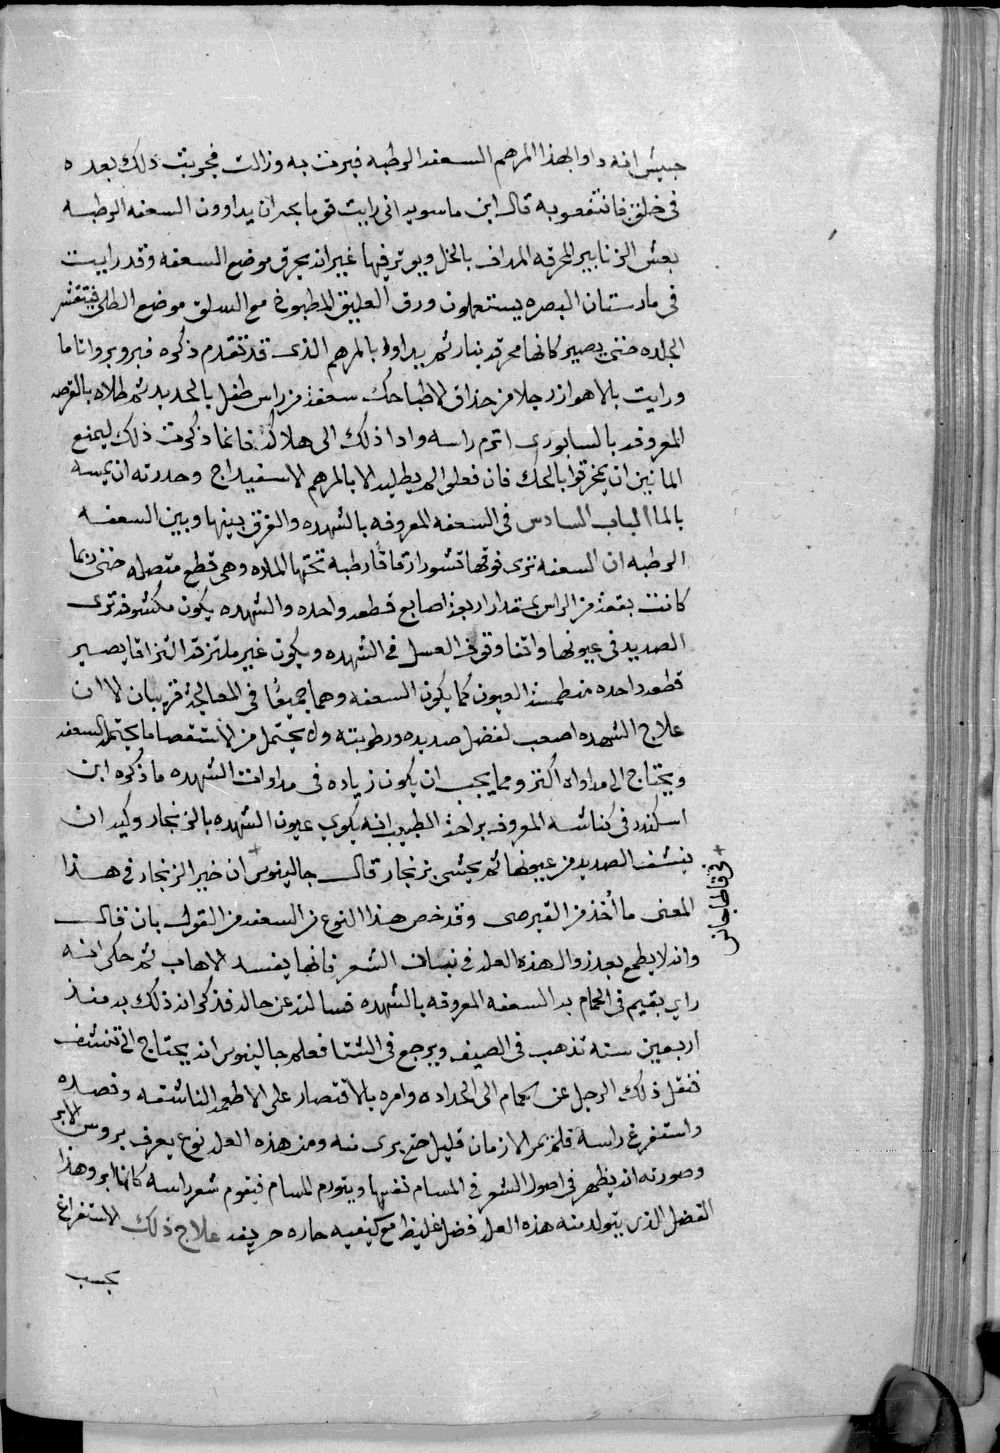 حبيش انه داوا بهذا المرهم السعفه الرطبه فبرت به وزالت فجربت ذلك بعده
فى خلق فانتفعوا به قال ابن ماسويه انى رايت قوما بحران يداوون السعفه الرطبه
بعش الزنابير المحرقه المداف بالخل ويوثر فيها غير انه يحرق موضع السعفه وقد رايت
فى مارستان البصره يستعملون ورق العليق المطبوخ مع السلق موضع الطلى فيتقشر
الجلده حتى يصير كانها محرقه بنار ثم يداوا بالمرهم الذى قد تقدم ذكره فبرو بروا تاما
ورايت بالاهواز رجلا من حذاق الاطبا حك سعفة من راس طفل بالحديد ثم طلاه بالقرص
المعروف بالسابورى اثرم راسه وادا ذلك الى هلاكه فانما ذكرت ذلك ليمنع
المانين ان يخرقوا بالحك فان فعلوا لم يطليه الا بالمرهم الاسفيداج وحدرته ان يمسه
بالما الباب السادس فى السعفه المعروفه بالشهده والفرق بينها وبين السعفه
الرطبه ان السعفه ترى فوقها قشورا رقاقا رطبة تحتها الماده وهى قطع متصله حتى ربما
كانت بقعة من الراس مقدار اربعة اصابع قطعه واحده والشهده يكون مكشوفه ترى
الصديد فى عيونها واقفا وقوف العسل فى الشهده ويكون غير ملتزقه التزاقا يصير
قطعه واحده منطمسة العيون كما يكون السعفه وهما جميعًا فى المعالجة قريبان الا ان
علاج الشهده اصعب لفضل صديده ورطوبته ولا يحتمل من الاستقصا ما يحتمل السعفه
ويحتاج الى مداواه اكثر ومما يجب ان يكون زياده فى مداوات الشهده ما ذكره ابن
اسكندر فى كناشه المعروف براحة الطبيب انه يكوى عيون الشهده بالزنجار وكيد ان
ينشف الصديد من عيونها ثم يحشى بزنجار قال جالينوس ان خير الزنجار فى هذا
المعنى ما أخذ من القبرصى وقد خص هذا النوع من السعفه من القول بان قال
وانه لا يطمع بعد زوال هذه العله فى نبات الشعر فانها يفسد الاهاب ثم حكى انه
راى بقيم فى الحمام بد السعفه المعروفه بالشهده فسالته عن حاله فذكر ان ذلك به منذ
اربعين سنه تذهب فى الصيف ويرجع فى الشتا فعلم جالينوس انه يحتاج الى تنشف
فنقل ذلك الرجل عن الحمام الى الحداده وامره بالاقتصار على الاطعمه الناشفه وفصده
واستفرغ راسه فلم يمر الا زمان قليل حتى برى منه ومن هذه العله نوع يعرف بروس الابر
وصورته انه يظهر فى اصول الشعر فى المسام نفسها ويتورم المسام فيقوم شعر راسه كانها ابر وهذا
الفضل الذى يتولد منه هذه العله فضل غليظ مع كيفيه حاره حريفه علاج ذلك الاستفراغ
بحسب